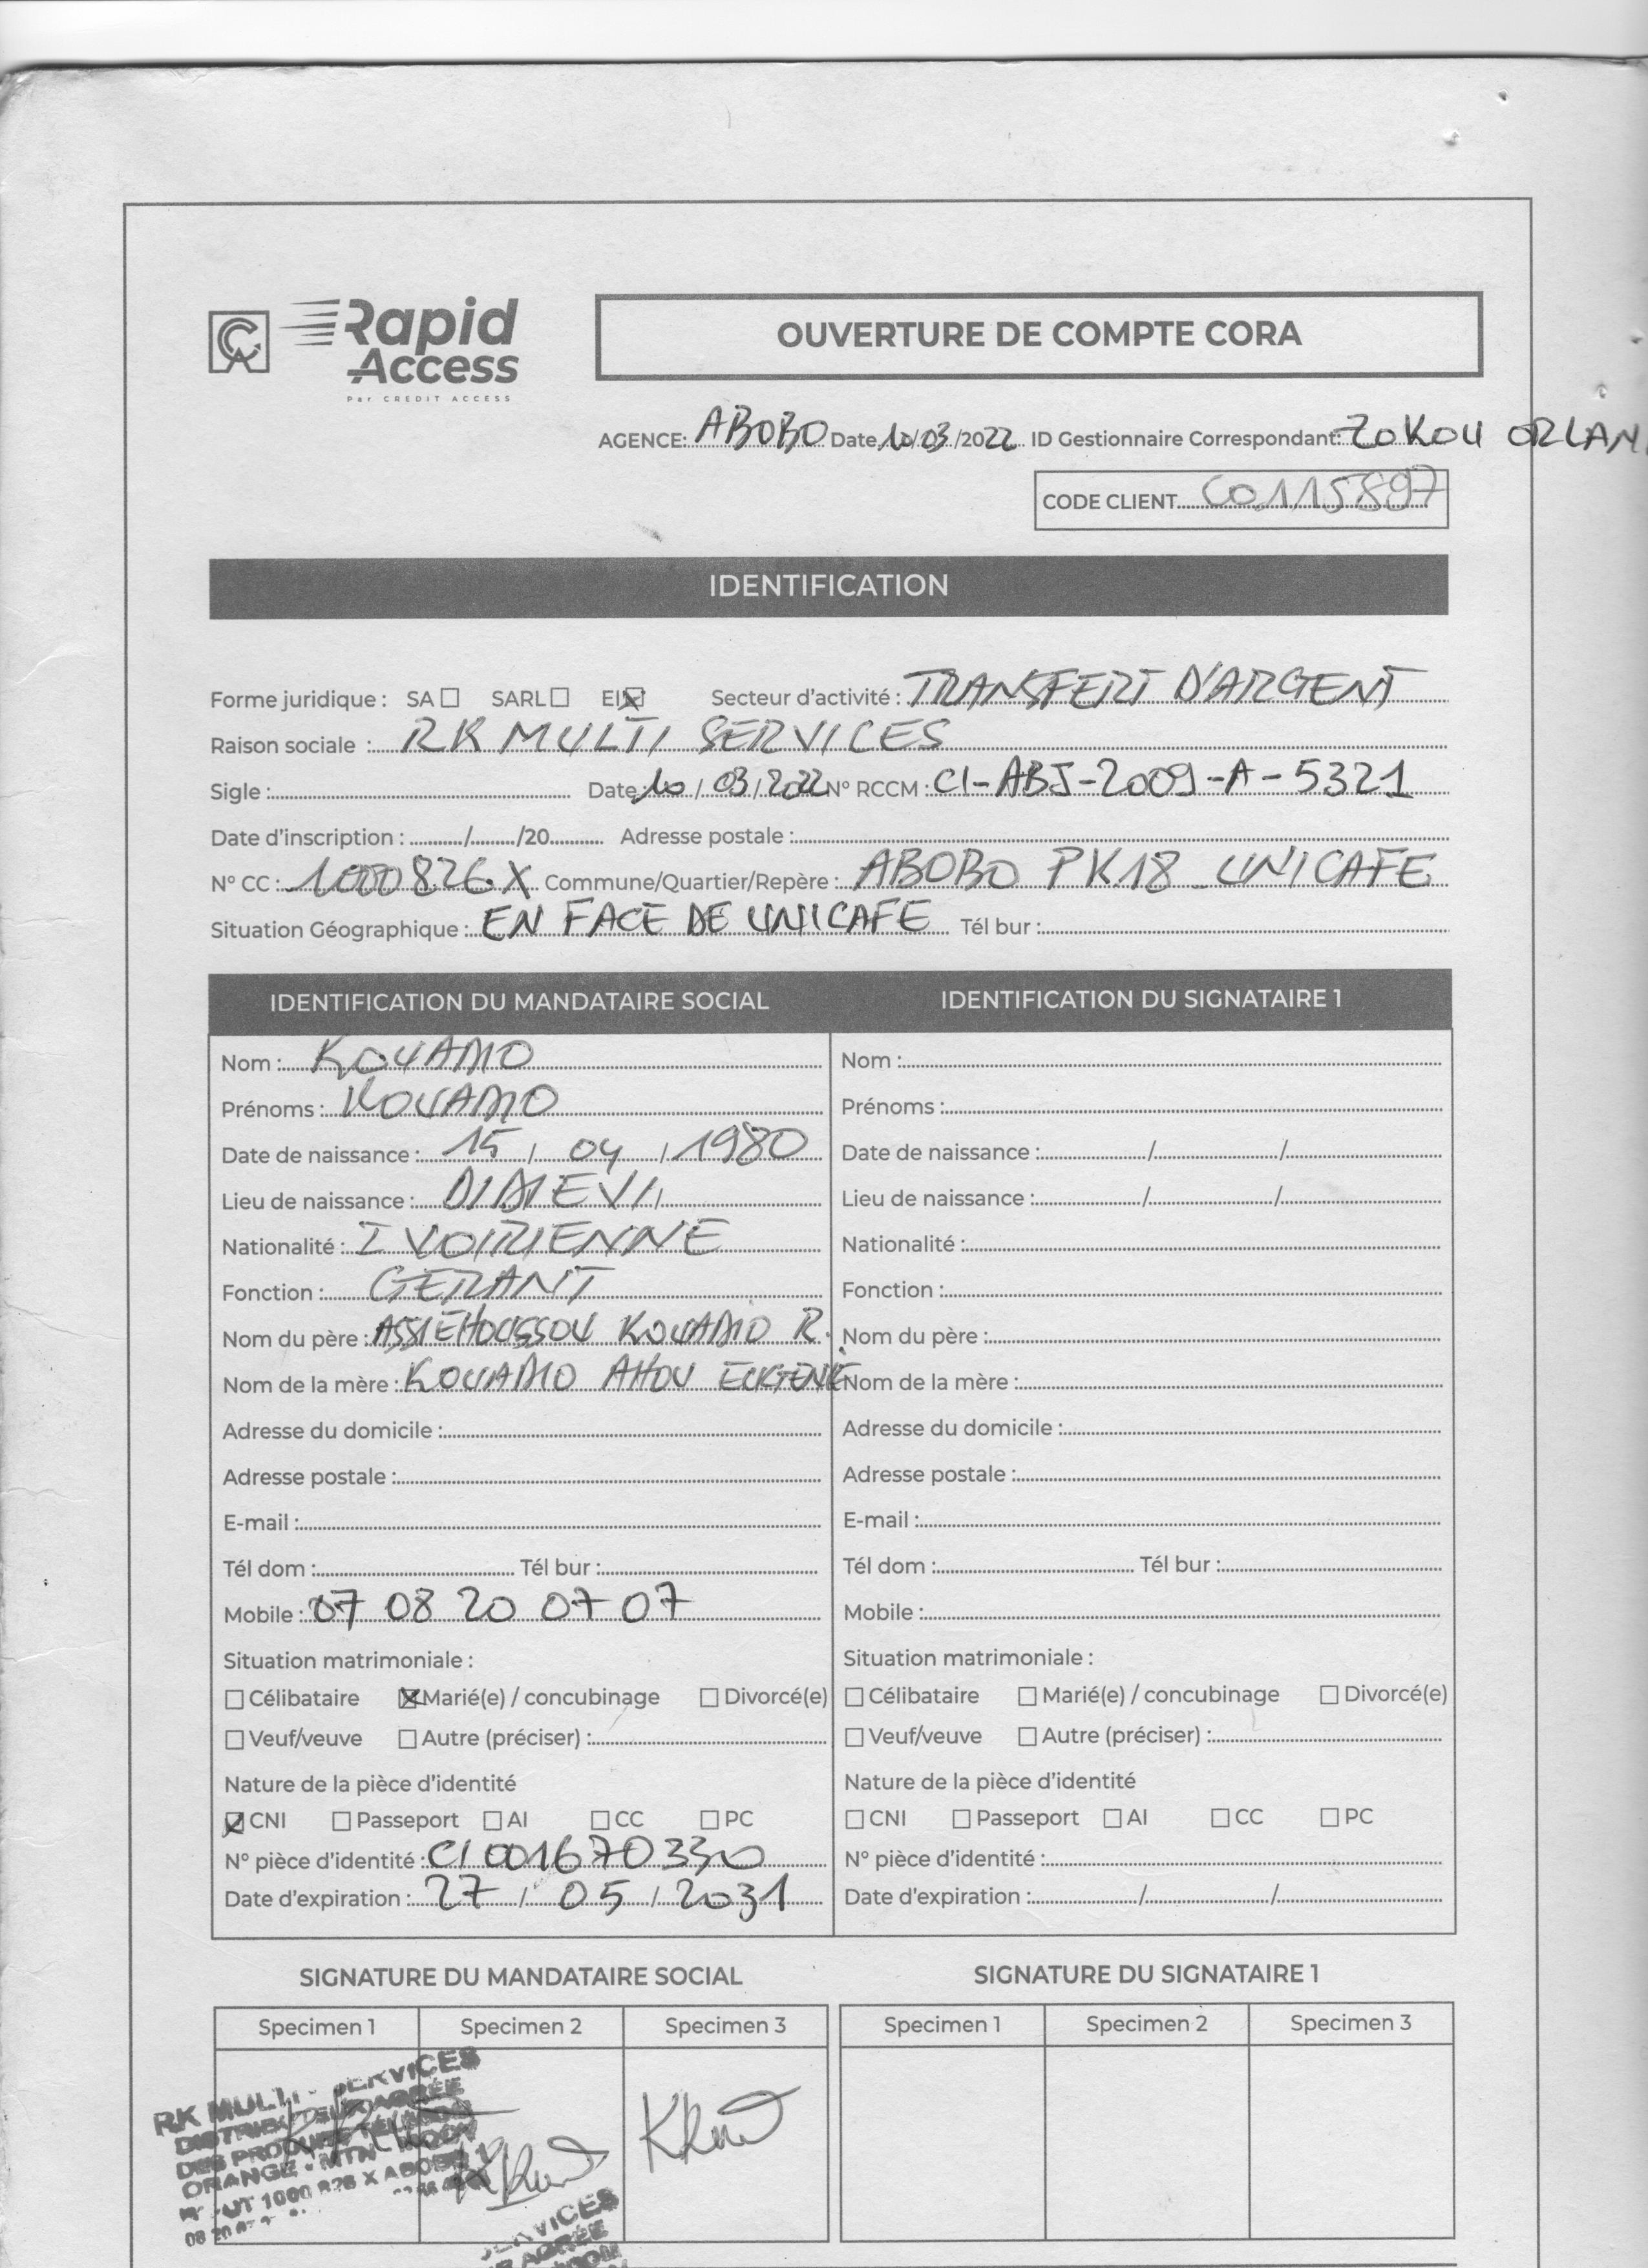 Rapid
Access
Par CREDIT ACCESS
OUVERTURE DE COMPTE CORA
AGENCE: ABOBO Date 10/03/2022 ID Gestionnaire Correspondant: ZOKOU ORLAN
CODE CLIENT C0115897
IDENTIFICATION
Forme juridique : SA SARL EI Secteur d'activité : TRANSFERT D'ARGENT
Raison sociale : RK MULTI SERVICES
Sigle : Date: 10/03/2022 N° RCCM : CI-ABJ-2009-A-5321
Date d'inscription : / /20 Adresse postale :
N° CC : 1000826X Commune/Quartier/Repère : ABOBO PK18 UNICAFE
Situation Géographique : EN FACE DE UNICAFE Tél bur :
IDENTIFICATION DU MANDATAIRE SOCIAL IDENTIFICATION DU SIGNATAIRE 1
Nom : KOUADIO Nom :
Prénoms : KOUADIO Prénoms :
Date de naissance : 15 / 04 / 1980 Date de naissance : / /
Lieu de naissance : Lieu de naissance : / /
Nationalité : IVOIRIENNE Nationalité :
Fonction : GERANT Fonction :
Nom du père : ASSIEHOUSSOU KOUADIO R. Nom du père :
Nom de la mère : KOUADIO AHOU EUGENIE Nom de la mère :
Adresse du domicile : Adresse du domicile :
Adresse postale : Adresse postale :
E-mail : E-mail :
Tél dom : Tél bur : Tél dom : Tél bur :
Mobile : 07 08 20 07 07 Mobile :
Situation matrimoniale : Situation matrimoniale :
Célibataire Marié(e) / concubinage Divorcé(e) Célibataire Marié(e) / concubinage Divorcé(e)
Veuf/veuve Autre (préciser) : Veuf/veuve Autre (préciser) :
Nature de la pièce d'identité Nature de la pièce d'identité
CNI Passeport AI CC PC CNI Passeport AI CC PC
N° pièce d'identité : CI 001670330 N° pièce d'identité :
Date d'expiration : 27 / 05 / 2031 Date d'expiration : / /
SIGNATURE DU MANDATAIRE SOCIAL SIGNATURE DU SIGNATAIRE 1
Specimen 1 Specimen 2 Specimen 3 Specimen 1 Specimen 2 Specimen 3
RK MULTI SERVICES
DISTRIBUTEUR AGRÉE
DES PRODUITS
ORANGE - MTN - MOOV
1000 826 X ABOBO
SERVICES
AGRÉE